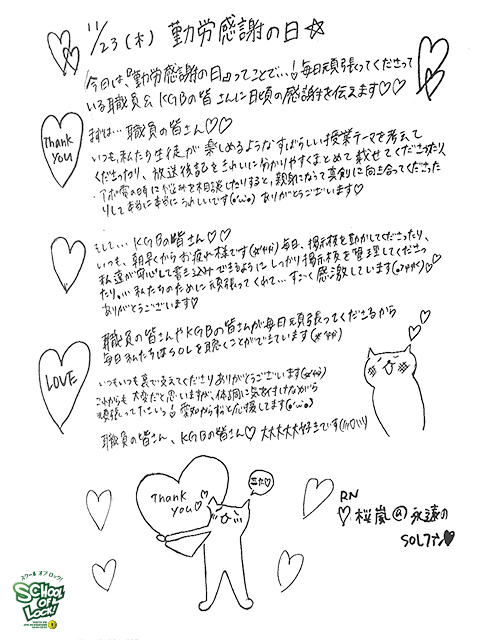 11/23(木) 勤労感謝の日☆
今日は、『勤労感謝の日』ってことで…!毎日頑張ってくださって
いる職員& KGBの皆さんに日頃の感謝を伝えます♡♡
Thank
You
まずは… 職員の皆さん♡♡
いつも、私たち生徒が楽しめるようなすばらしい授業テーマを考えて
くださったり、放送後記をきれいに分かりやすくまとめて載せてくださったり、
・アポ電の時に悩みを相談したりすると、親身になって真剣に向き合ってくださった
りして本当に本当にうれしいです(o'ω'o) ありがとうございます♡
そして… KGBの皆さん♡♡
いつも、朝早くからお疲れ様です 毎日、掲示板を動かしてくださったり、
私達が安心して書き込みできるようにしっかり掲示板を管理してくださっ
たり。。。私たちのために頑張ってくれて…すごく感激しています
ありがとうございます♡
職員の皆さんやKGBの皆さんが毎日頑張ってくださるから
毎日私たちはSOLを聴くことができています
LOVE
いつもいつも裏で支えてくださりありがとうございます
これからも大変だと思いますが、体調に気を付けながら
頑張って下さいっ!愛知からずっと応援してます(o'ω'o)
職員の皆さん、KGBの皆さん♡ 大大大大大好きです
Thank
you♡
RN
♡桜嵐@永遠の
SOLファン♥
スクール オブ ロック!
SCHOOL
OF
LOCK!